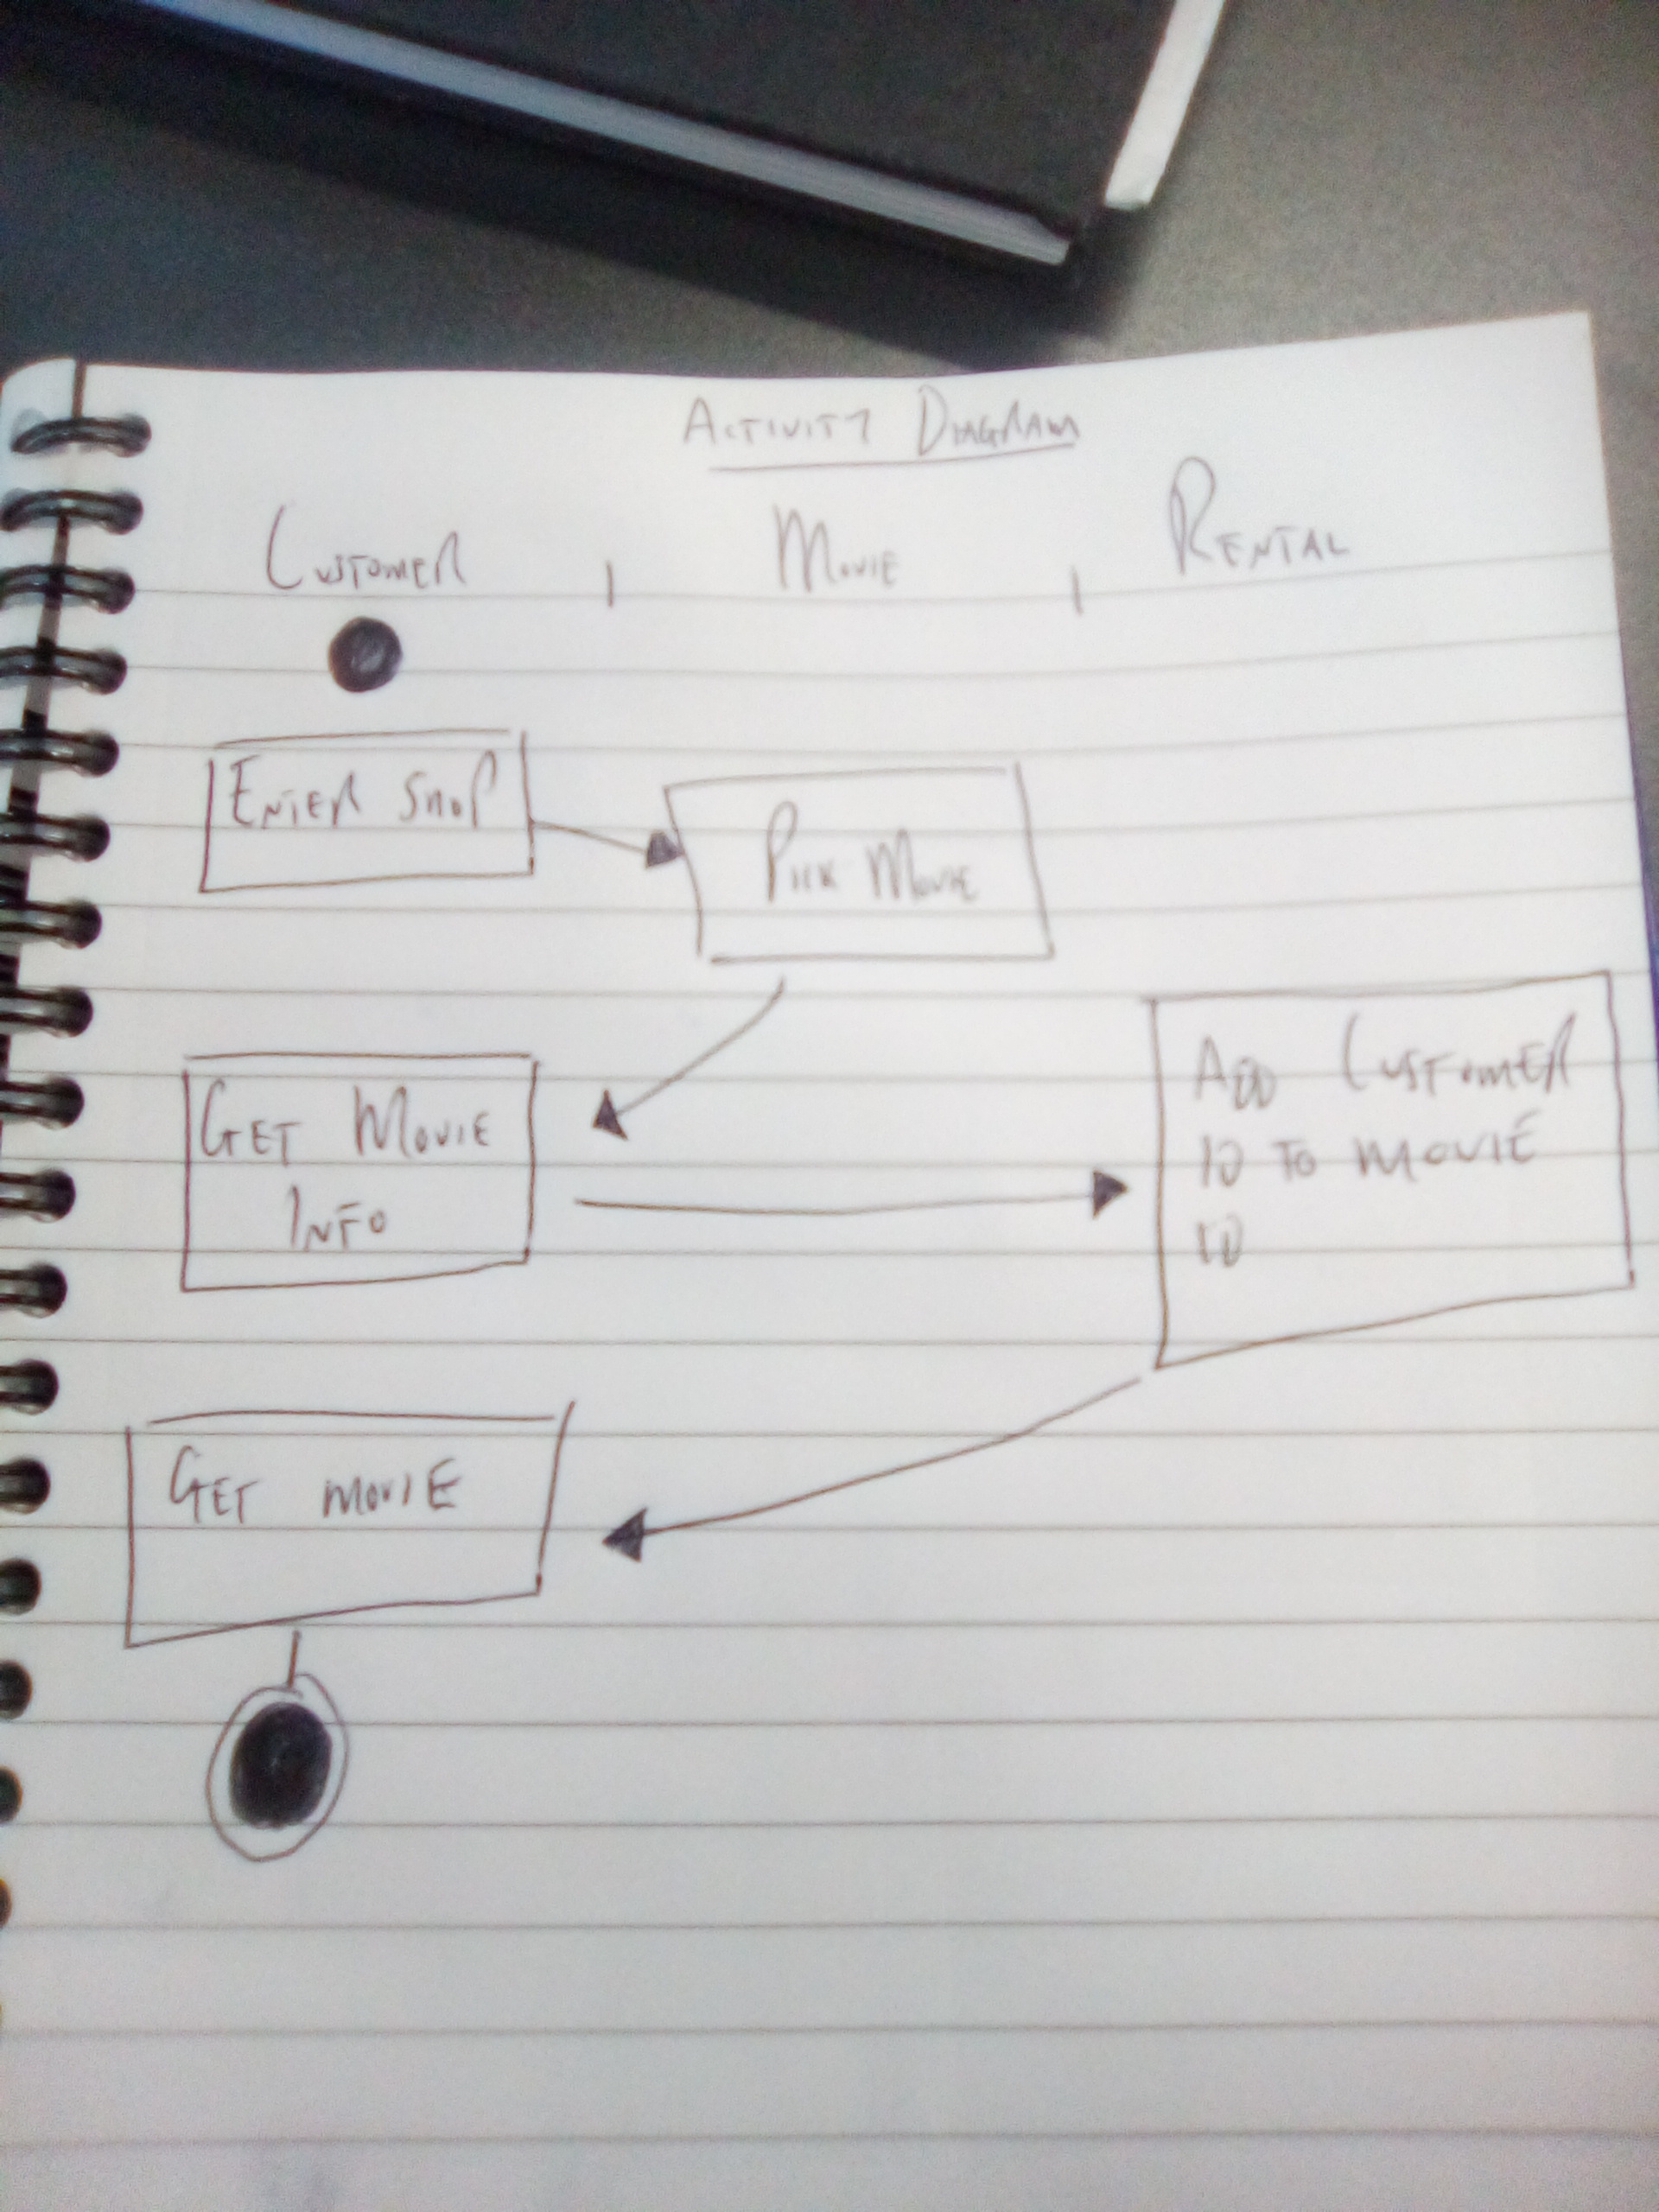 ACTIVITY DIAGRAM
CUSTOMER
MOVIE
RENTAL
ENTER SHOP
PICK MOVIE
GET MOVIE
INFO
ADD CUSTOMER
ID TO MOVIE
ID
GET MOVIE